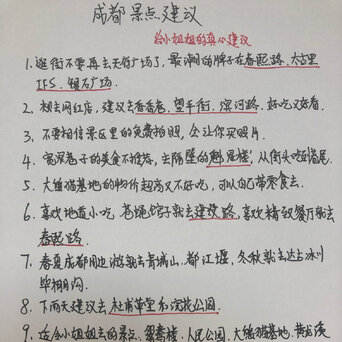 成都景点建议
给小姐姐的真心建议
1、逛街不要再去天府广场了，最潮的牌子在春熙路、太古里
IFS、银石广场。
2、想去网红店，建议去香香巷、望平街、滨河路。好吃又好看。
3、不要相信景区里的免费拍照，会让你买照片。
4、宽窄巷子的美食不推荐，去隔壁的魁星楼，从街头吃到街尾。
5、大熊猫基地的物价超高又不好吃，可以自己带零食去。
6、喜欢地道小吃、苍蝇馆子就去建设路，喜欢精致餐厅就去
春熙路。
7、春夏成都周边游就去青城山、都江堰，冬秋就去达古冰川
毕棚沟。
8、下雨天建议去杜甫草堂和浣花公园。
9、适合小姐姐去的景点，鹭鸶楼、人民公园、大熊猫基地、黄龙溪